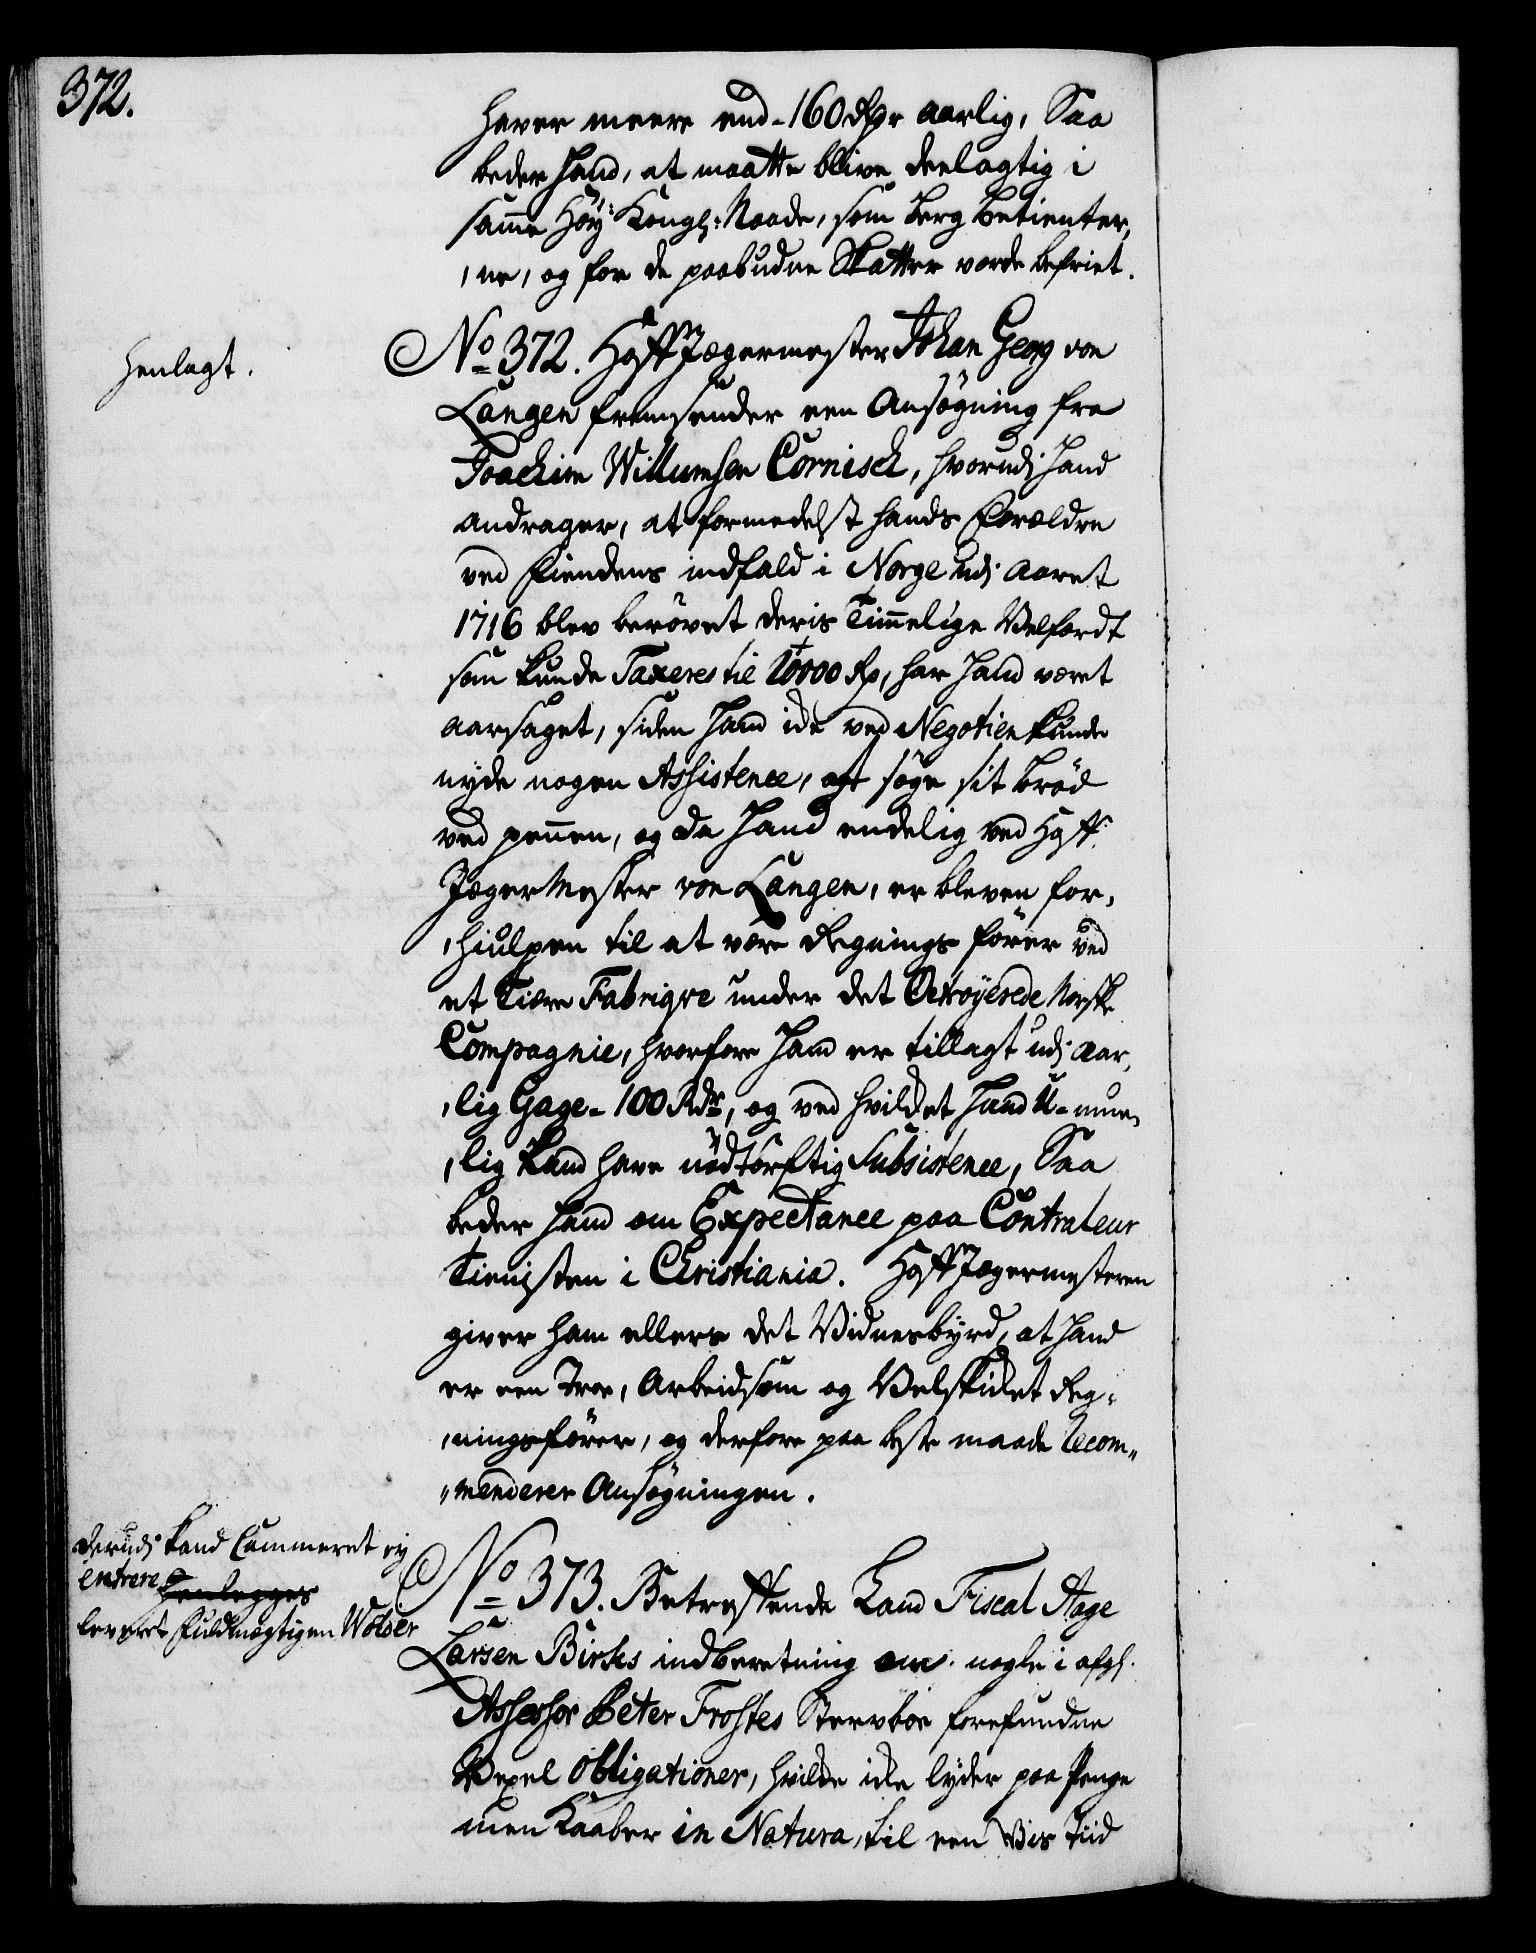 372.
haver meere end 160 Rdr aarlig, Saa
beder hand, at maatte blive deelagtig i
samme Høy: Kongl: Naade, som Berg Betienter,
,ne, og for de paabudne Skatter vorde befriet.
Henlagt.
No 372. HoffJægermester Johan Georg von
Langen fremsender een Ansøgning fra
Joachim Willumsen Cornisch, hvorudj hand
andrager, at formedelst hands Forældre
ved Fiendens indfald i Norge udj Aaret
1716 blev berøvet deris Timmelige Velfardt
som kunde Taxeres til 10000 Rd, har hand været
aarsaget, siden hand icke ved Negotien kunde
nyde nogen Assistence, at søge sit brød
ved pennen, og da hand endelig ved Hoff-
JægerMester von Langen, er bleven for,
,hiulpen til at være Regnings fører ved
et Tiære Fabriqve under det Octroyerede Norske
Compagnie, hvorfore hand er tillagt udj Aar,
,lig Gage - 100 Rdr, og ved hvilcket hand U-mue,
,lig kand have nødtørftig Subsistence, Saa
beder hand om Expectance paa Contraleur
Tienisten i Christiania. HoffJægermesteren
giver ham ellers det Vidnesbyrd, at hand
er een Troe, Arbeidsom og Velskicket Reg,
,ningsfører, og derfore paa beste maade recom„
„menderer Ansøgningen.
Derudj kand Cammeret ey
entrere
Henlegges
leveret Fuldmegtigen Wölder
No 373. Betreffende Land Fiscal Aage
Larsen Birks indberetning om nogle i afgl.
Assessor Peter Frostes Stervboe forefundne
Vexel Obligationer, hvilcke icke lyder paa Penge
men Kaaber in Natura, til een Vis Tiid